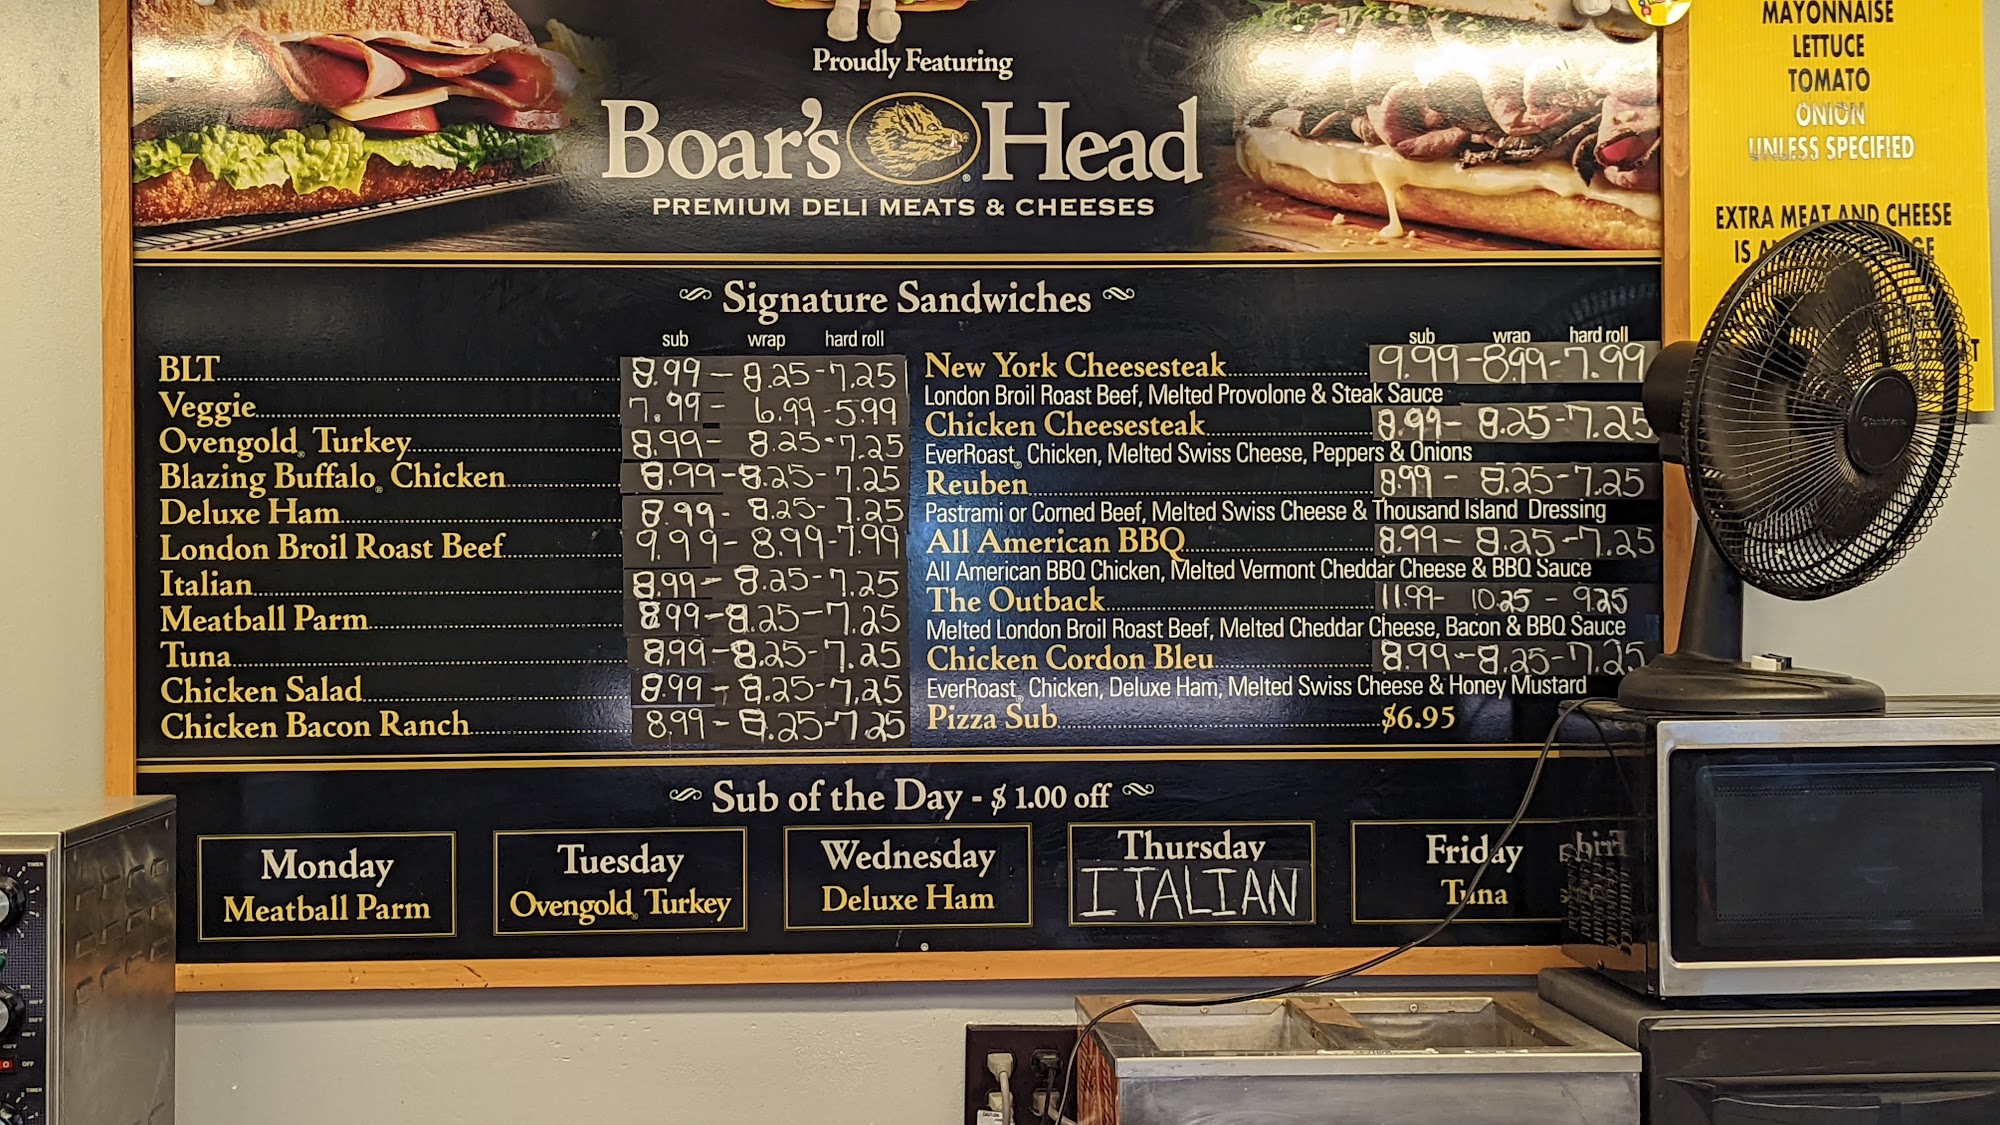 Proudly Featuring
Boar's Head
PREMIUM DELI MEATS & CHEESES
Signature Sandwiches
sub wrap hard roll
BLT 8.99 - 8.25 - 7.25
Veggie 7.99 - 6.99 - 5.99
Ovengold® Turkey 8.99 - 8.25 - 7.25
Blazing Buffalo® Chicken 8.99 - 8.25 - 7.25
Deluxe Ham 8.99 - 8.25 - 7.25
London Broil Roast Beef 9.99 - 8.99 - 7.99
Italian 8.99 - 8.25 - 7.25
Meatball Parm 8.99 - 8.25 - 7.25
Tuna 8.99 - 8.25 - 7.25
Chicken Salad 8.99 - 8.25 - 7.25
Chicken Bacon Ranch 8.99 - 8.25 - 7.25
sub wrap hard roll
New York Cheesesteak 9.99 - 8.99 - 7.99
London Broil Roast Beef, Melted Provolone & Steak Sauce
Chicken Cheesesteak 8.99 - 8.25 - 7.25
EverRoast® Chicken, Melted Swiss Cheese, Peppers & Onions
Reuben 8.99 - 8.25 - 7.25
Pastrami or Corned Beef, Melted Swiss Cheese & Thousand Island Dressing
All American BBQ 8.99 - 8.25 - 7.25
All American BBQ Chicken, Melted Vermont Cheddar Cheese & BBQ Sauce
The Outback 11.99 - 10.25 - 9.25
Melted London Broil Roast Beef, Melted Cheddar Cheese, Bacon & BBQ Sauce
Chicken Cordon Bleu 8.99 - 8.25 - 7.25
EverRoast® Chicken, Deluxe Ham, Melted Swiss Cheese & Honey Mustard
Pizza Sub $6.95
Sub of the Day - $1.00 off
Monday
Meatball Parm
Tuesday
Ovengold® Turkey
Wednesday
Deluxe Ham
Thursday
ITALIAN
Friday
Tuna
MAYONNAISE
LETTUCE
TOMATO
ONION
UNLESS SPECIFIED
EXTRA MEAT AND CHEESE
IS